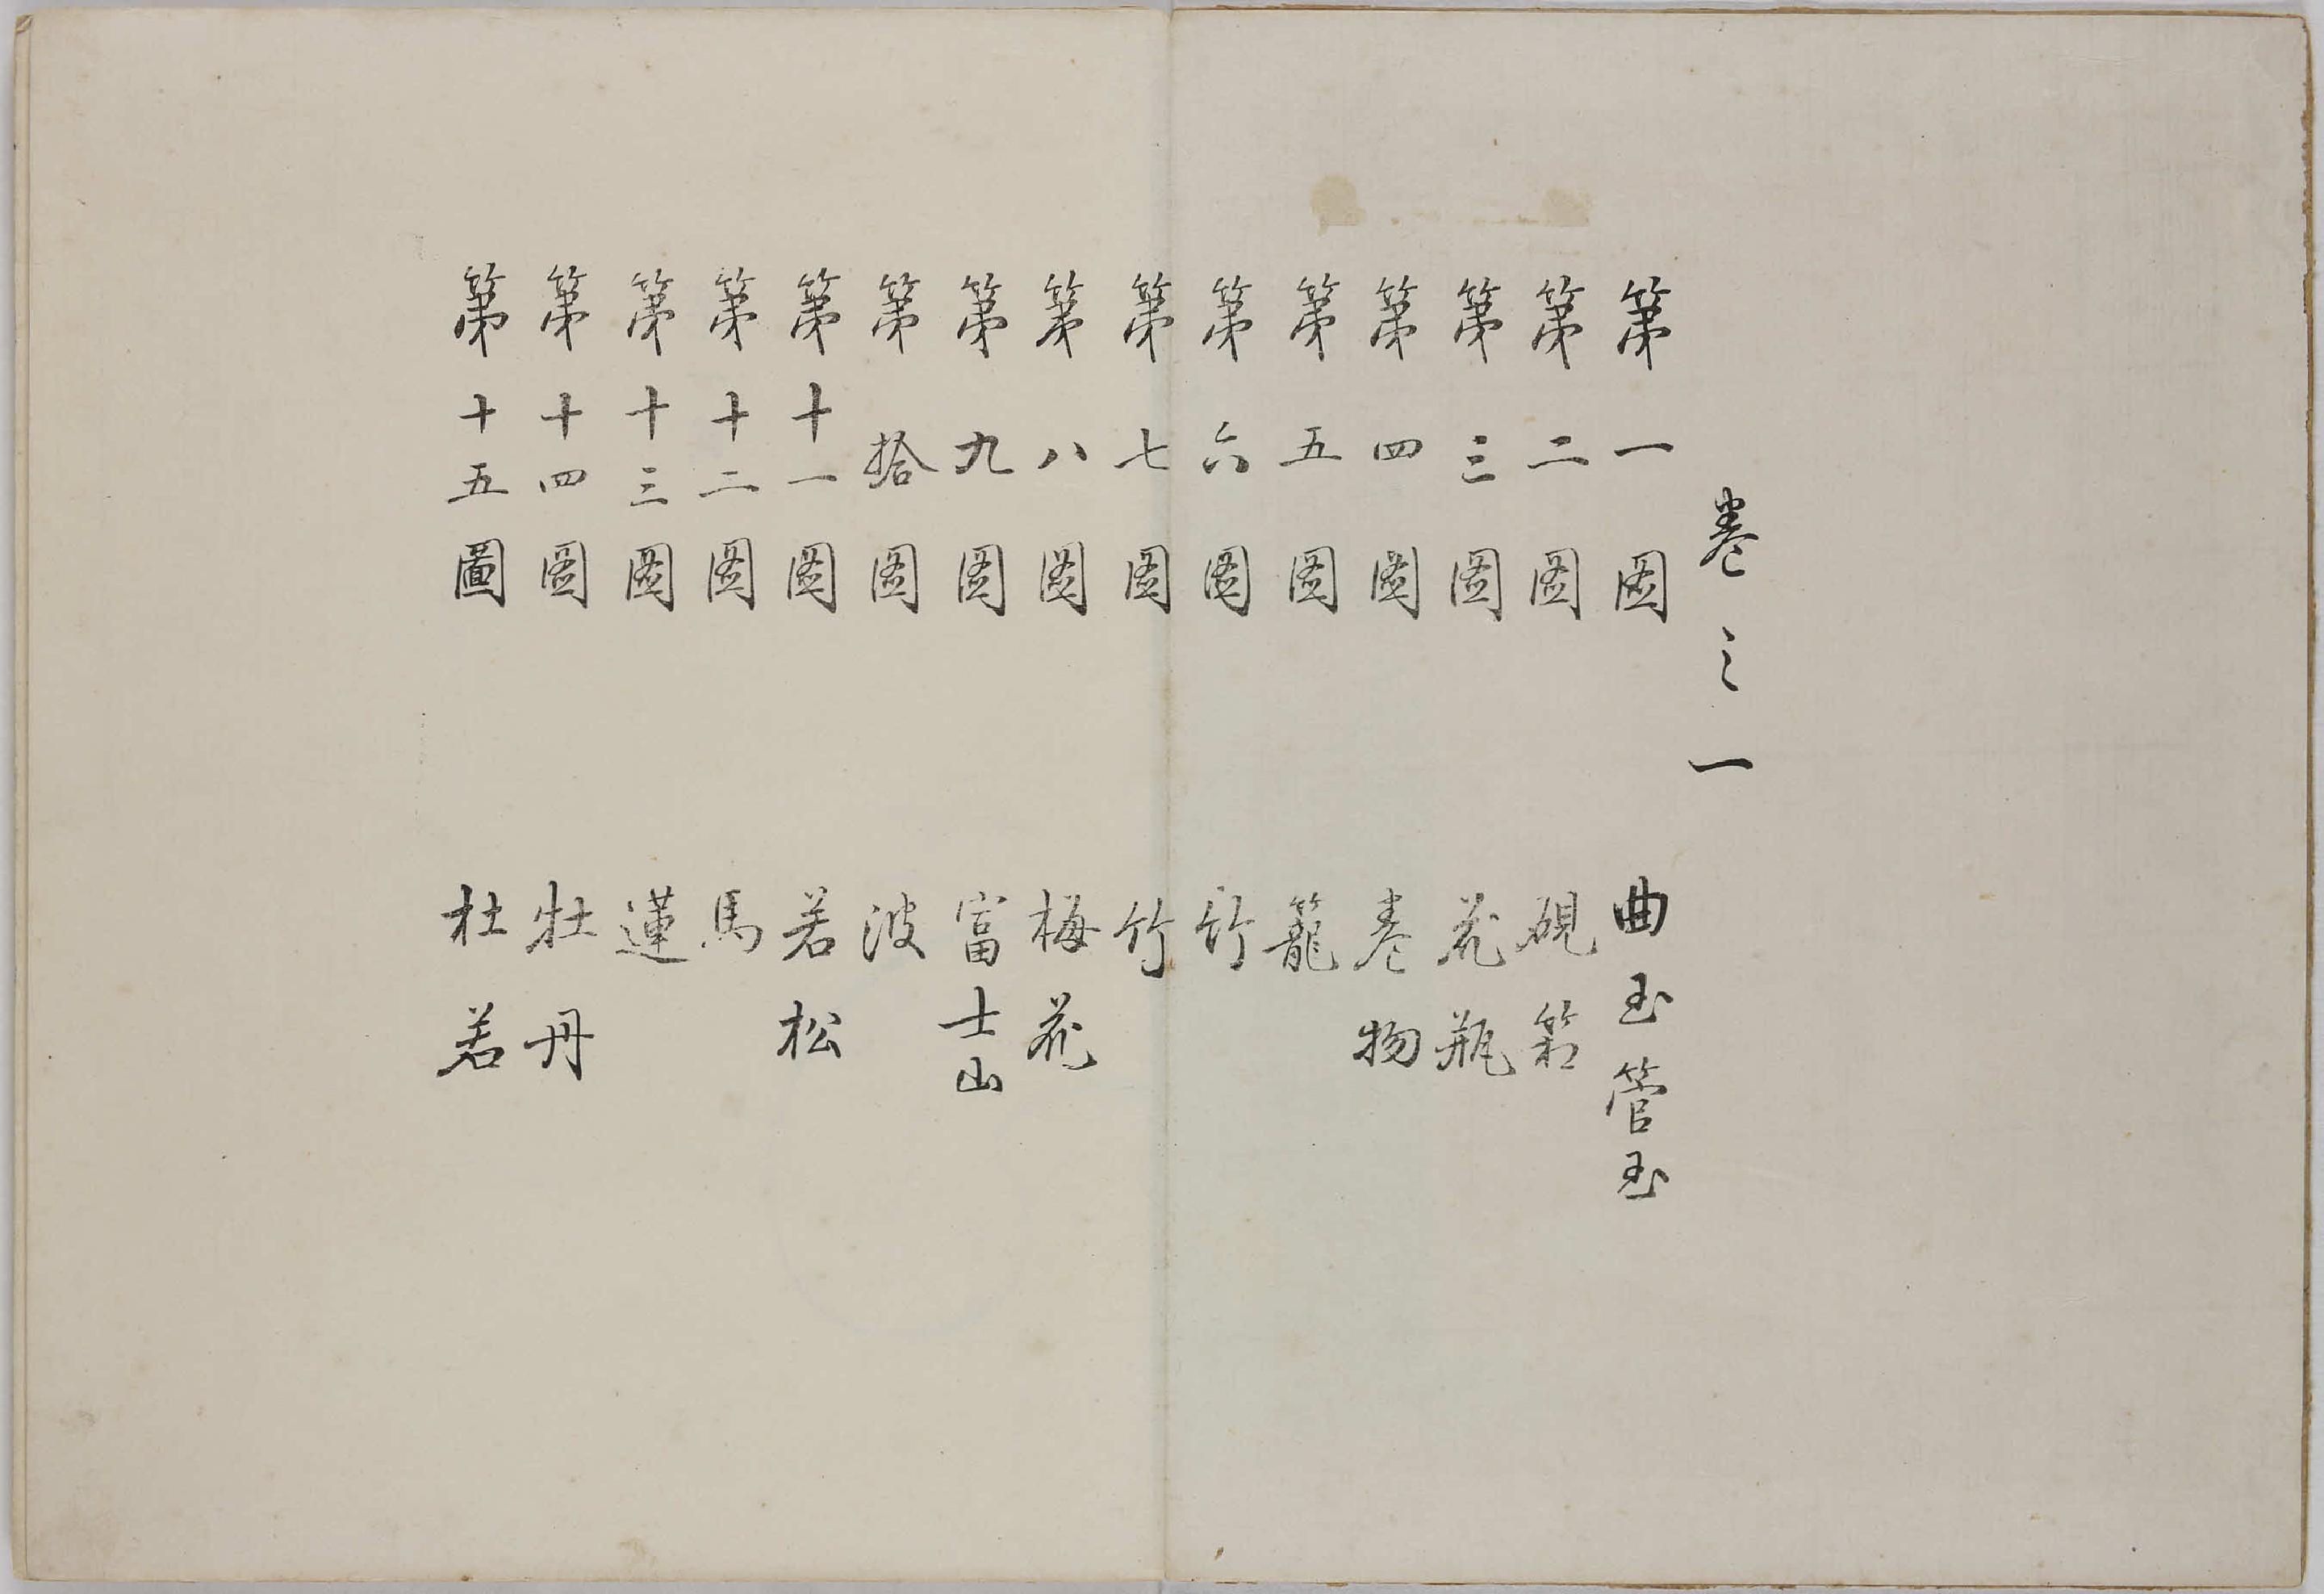 巻之一
第一図 曲玉管玉
第二図 硯箱
第三図 花瓶
第四図 巻物
第五図 籠
第六図 竹
第七図 竹
第八図 梅花
第九図 富士山
第拾図 波
第十一図 若松
第十二図 馬
第十三図 蓮
第十四図 牡丹
第十五圖 杜若